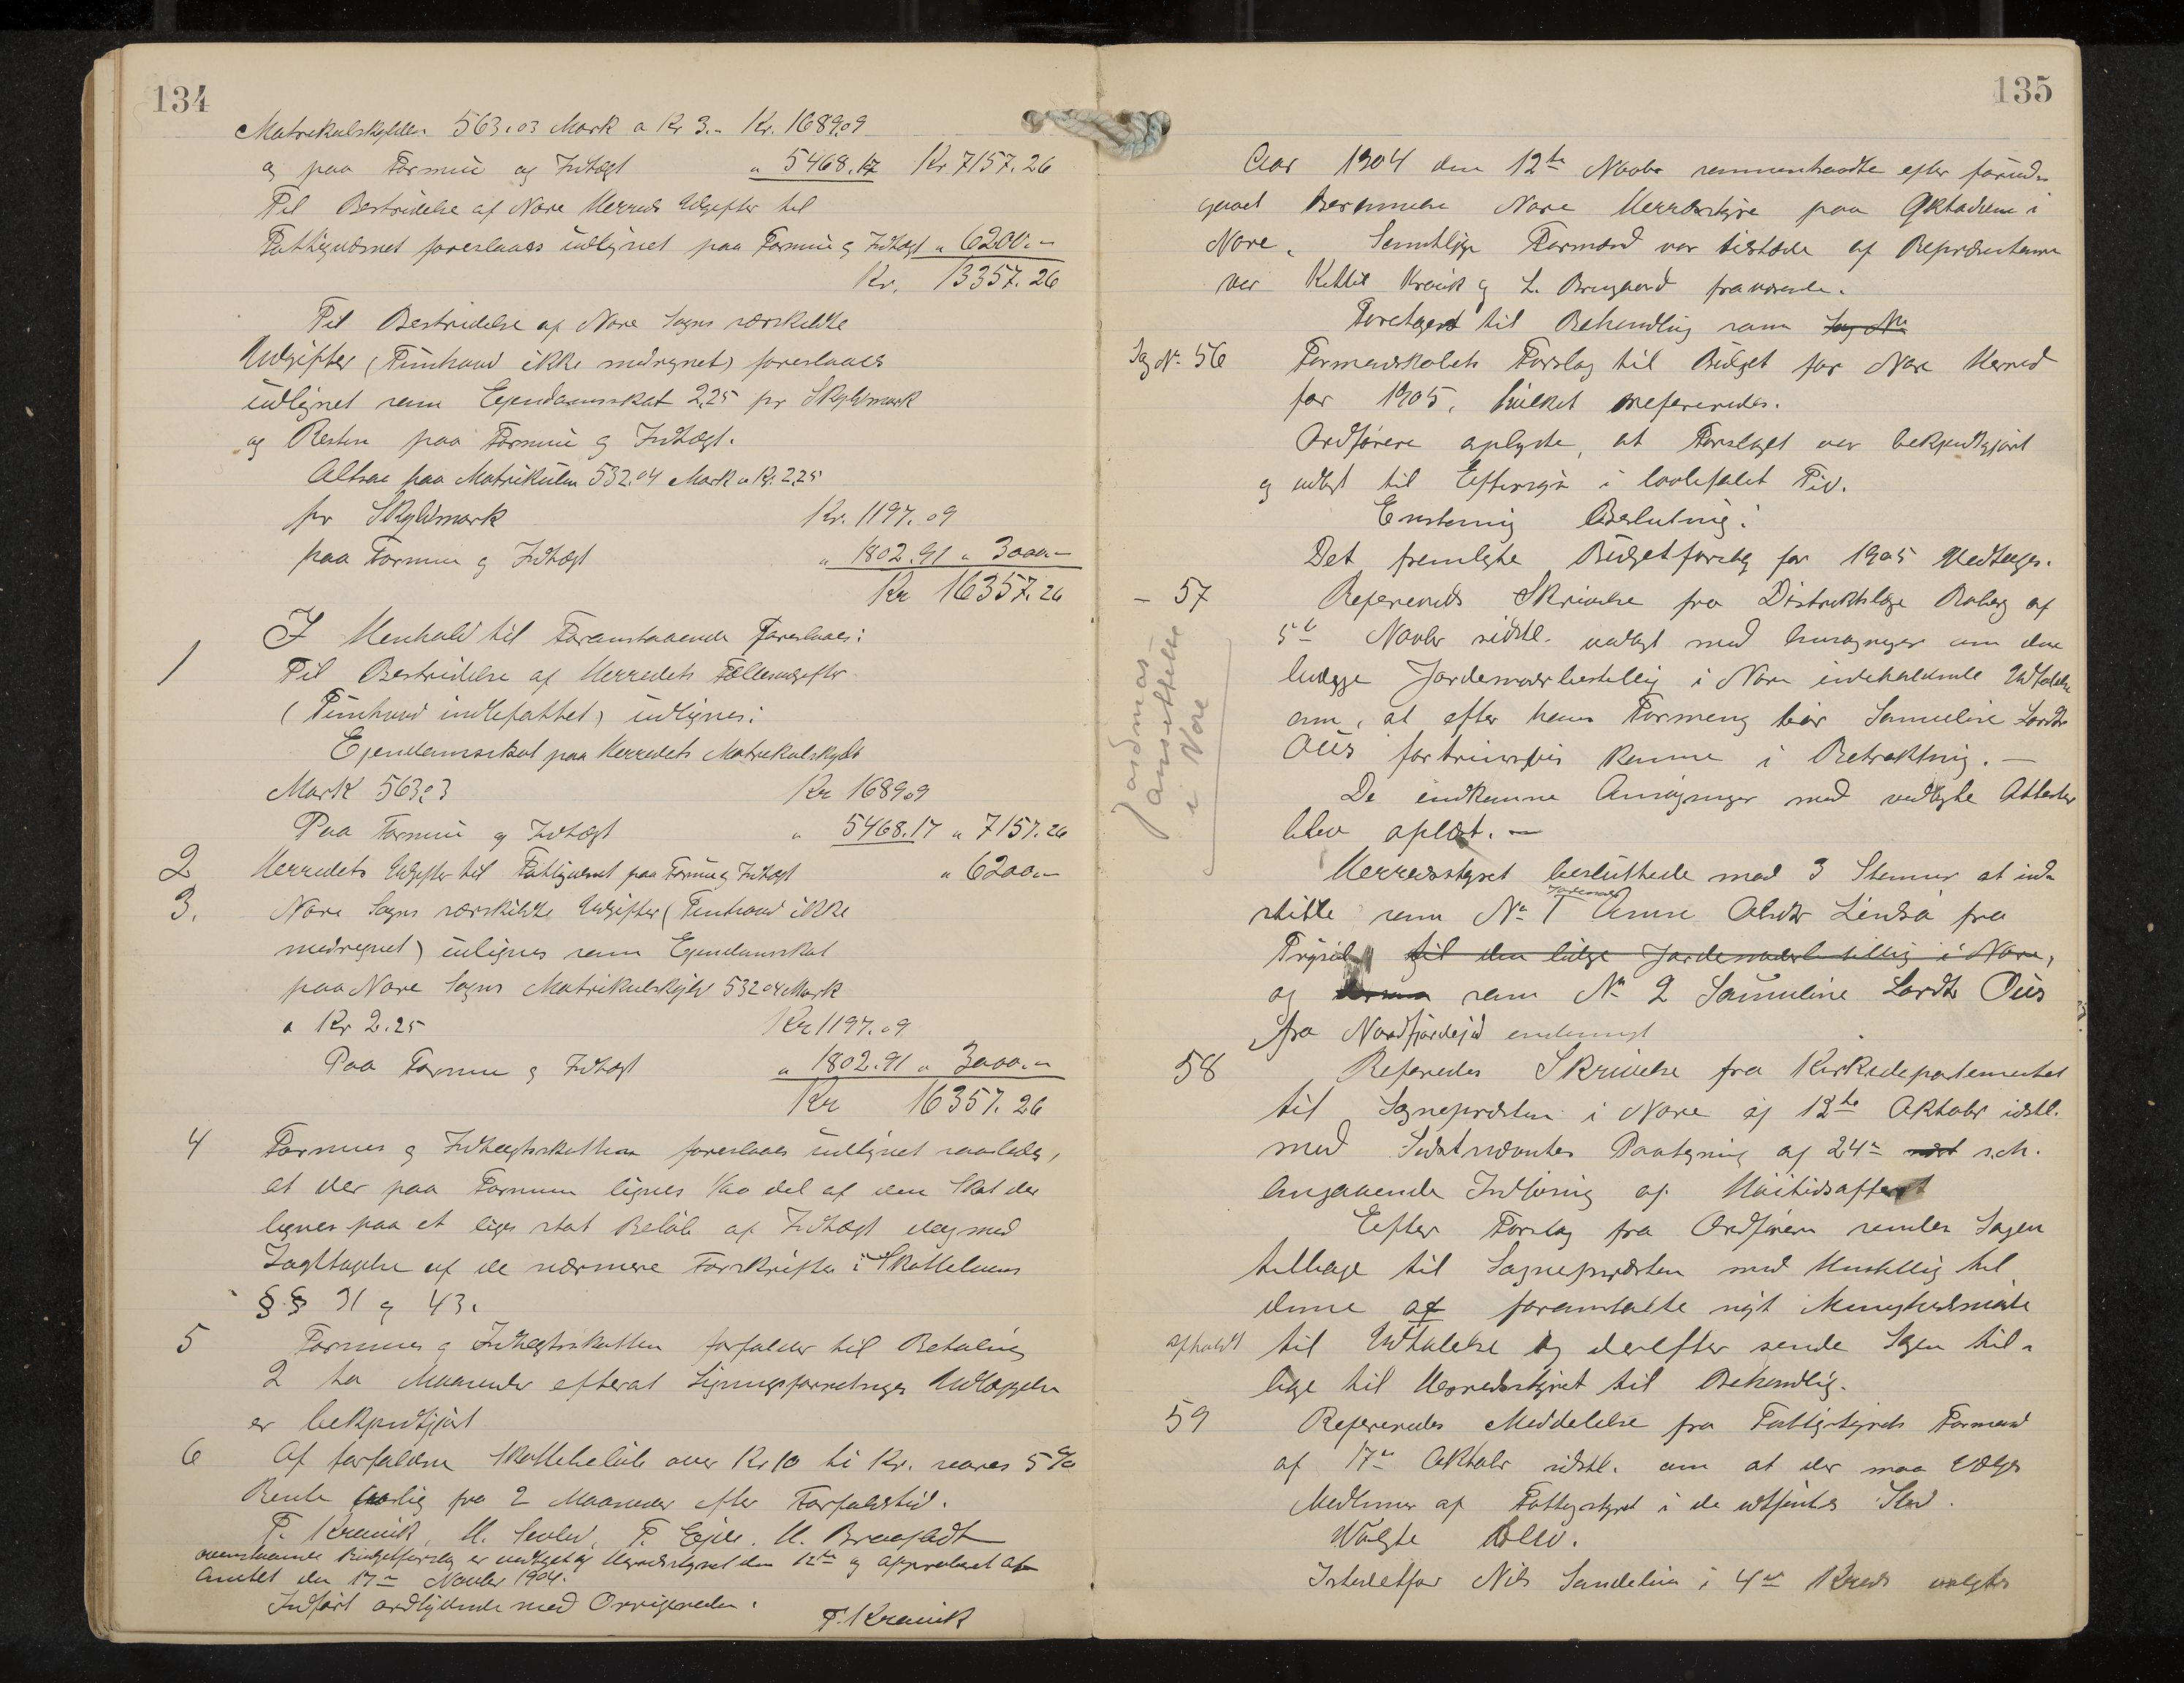 134
Matrikulskylden 563.03 Mark a Kr 3.- Kr. 1689.09
og paa Formue og Indtægt " 5468.17 Kr. 7157.26
Til Bestridelse af Nore Herreds Udgifter til
Fattigvæsnet foreslaaes udlignet paa Formue og Indtægt " 6200.-
Kr. 13357.26
Til Bestridelse af Nore Sogns særskildte
Udgifter (Tinhaud ikke medregnet) foreslaaes
udlignet som Ejendomsskat 2,25 pr Skyldmark
og Resten paa Formue og Indtægt.
Altsaa paa Matrikulen 532.04 Mark a Kr. 2.25
pr Skyldmark Kr. 1197.09
paa Formue og Indtægt " 1802.91 " 3000.-
Kr 16357.26
I Henhold til Foranstaaende foreslaaes:
1 Til Bestridelse af Herredets Fællesudgifter
(Tinhaud indbefattet) udlignes:
Ejendomsskat paa Herredets Matrikulskyld
Mark 563.03 Kr 1689.09
Paa Formue og Indtægt " 5468.17 " 7157.26
2 Herredets Udgifter til Fattigvæsnet paa Formue og Indtægt " 6200.-
3. Nore Sogns særskildte Udgifter (Tinhaud ikke
medregnet) udlignes som Ejendomsskat
paa Nore Sogns Matrikulskyld 532.04 Mark
a Kr 2.25 Kr 1197.09
Paa Formue og Indtægt " 1802.91 " 3000.-
Kr 16357.26
4 Formues og Indtægtsskatten foreslaaes udlignet saaledes,
at der paa Formuen lignes del af den Skat der
lignes paa et lige stort Beløb af Indtægt dog med
Iagttagelse af de nærmere Forskrifter i Skattelovens
§§ 31 og 43.
5 Formues og Indtægtsskatten forfalder til Betaling
2 to Maaneder efterat Ligningsforretningens Udlæggelse
er bekjendtgjort
6 Af forfaldne Skattebeløb over Kr 10 ti Kr. svares 5 %
Rente aarlig fra 2 Maaneder efter Forfaldstid.
T. Kravik, H. Sevled, T. Eide. H. Braafladt
ovenstaaende Budgetforslag er vedtaget af Herredsstyret den 12te og approberet af
Amtet den 17de Novbr 1904.
Indført ordlydende med Originalen.
T. Kravik
135
Aar 1904 den 12te Novbr sammentraadte efter forud-
gaaet Berammelse Nore Herredstyre paa Oktedalen i
Nore. Samtlige Formænd var tilstæde af Repræsentanter
var Kittil Kravik og L. Brugaard fraværende.
Foretaget til Behandling som Sag No
Sag No 56 Formandskabets Forslag til Budget for Nore Herred
for 1905, hvilket refereredes.
Ordføreren oplyste, at Forslaget var bekjendtgjort
og udlagt til Eftersyn i lovbefalet Tid.
Enstemig Beslutning:
Det fremlagte Budgetforslag for 1905 vedtages.
- 57 Refereredes Skrivelse fra Distriktslæge Roberg af
5te Novbr sidstl. vedlagt med Ansøgninger om den
ledige Jordemoderbestilling i Nore indeholdende Udtalelse
om, at efter hans Formening bør Samuline Lardtr
Øiis fortrinsvis komme i Betraktning. —
De indkomne Ansøgninger med vedlagte Attester
blev oplæst. —
Jordmoransættelse i Nore
Herredsstyret besluttede med 3 Stemmer at ind-
stille som No 1 Jordemoder Anne Olsdtr Lindså fra
Trysil til den ledige Jordemoderbestilling i Nore,
og som No 2 Samuline Lardtr Øiis
fra Nordfjordeid enstemigt
58 Refereredes Skrivelse fra Kirkedepartementet
til Sognepræsten i Nore af 12te Oktobr sidstl.
med Sidstnævntes Paategning af 24de s.M.
Angaaende Indløsning af Høitidsoffret
Efter Forslag fra Ordføreren sendes Sagen
tilbage til Sognepræsten med Henstilling til
denne at foranstalte nyt Menighedsmøde
afholdt til Udtalelse og derefter sende Sagen til-
bage til Herredsstyret til Behandling.
59 Refereredes Meddelelse fra Fattigstyrets Formand
af 17de Oktobr sidstl. om at der maa vælges
Medlemmer af Fattigstyret i de udtjentes Sted.
Valgte blev.
Istedetfor Nils Sandelien i 4de Kreds valgtes